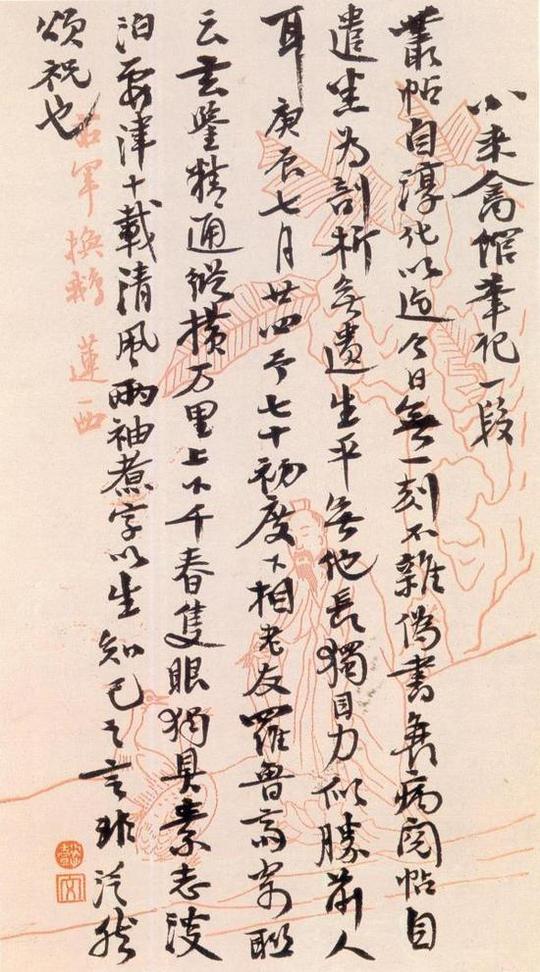 小来禽館筆记一段
叢帖自淳化以迄今日無一刻不雜偽書養病閱帖自
遣坐为剖析無遺生平無他長獨目力似勝前人
耳庚辰七月廿四予七十初度相老友羅魯斋寄聯
云玄鑒精通縱橫万里上下千春隻眼獨具素志淡
泊要津十載清風兩袖煮字以生知己之言非泛然
頌祝也
右軍換鵝 蓮西